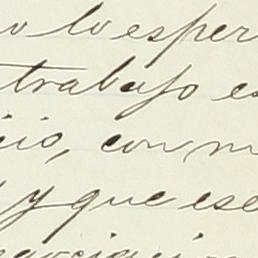 o lo esper
trabajo es
icio, con m
y que ese